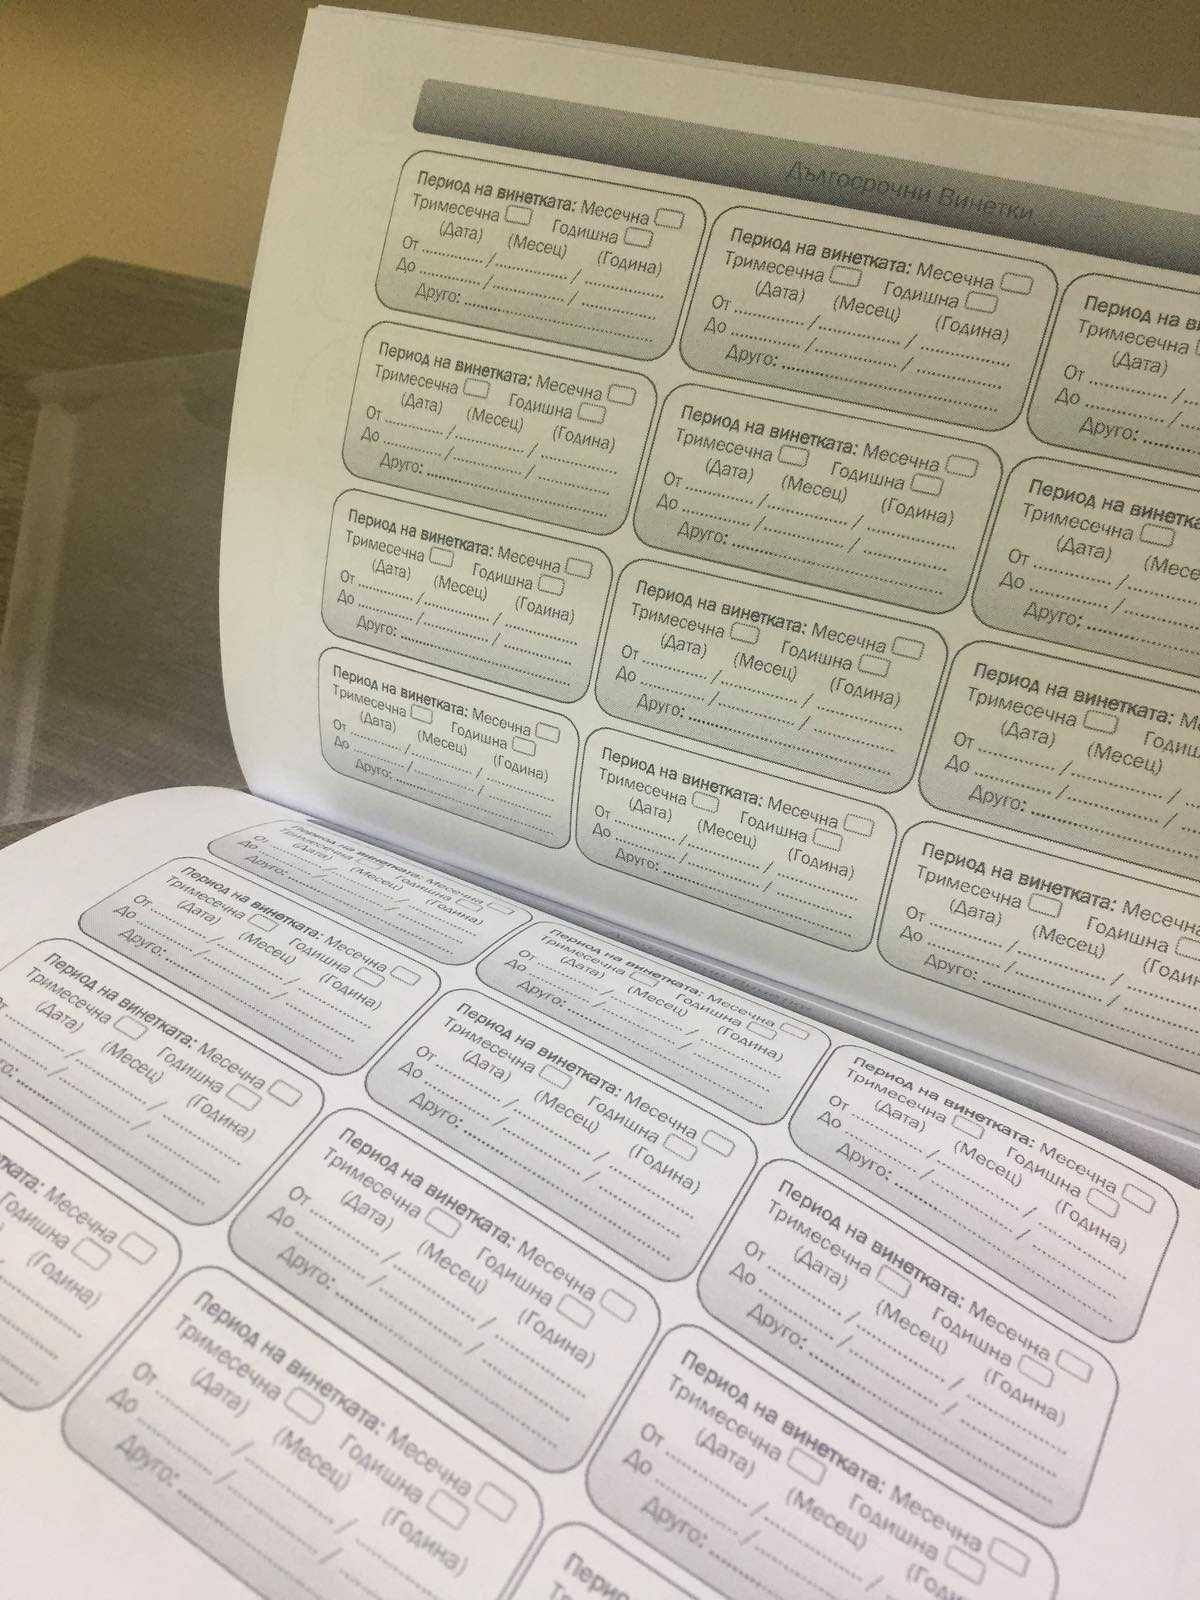 Дългосрочни Винетки
Период на винетката: Месечна
Тримесечна Годишна
(Дата) (Месец) (Година)
От ............/............/............
До ............/............/............
Друго: ..............................
Период на винетката: Месечна
Тримесечна Годишна
(Дата) (Месец) (Година)
От ............/............/............
До ............/............/............
Друго: ..............................
Период на ви
Тримесечна
(Дата)
От ............/
До ............/
Друго: ............
Период на винетката: Месечна
Тримесечна Годишна
(Дата) (Месец) (Година)
От ............/............/............
До ............/............/............
Друго: ..............................
Период на винетката: Месечна
Тримесечна Годишна
(Дата) (Месец) (Година)
От ............/............/............
До ............/............/............
Друго: ..............................
Период на винетка
Тримесечна
(Дата) (Месе
От ............/
До ............/
Друго: ............
Период на винетката: Месечна
Тримесечна Годишна
(Дата) (Месец) (Година)
От ............/............/............
До ............/............/............
Друго: ..............................
Период на винетката: Месечна
Тримесечна Годишна
(Дата) (Месец) (Година)
От ............/............/............
До ............/............/............
Друго: ..............................
Период на винетката: М
Тримесечна Годиш
(Дата) (Месец)
От ............/............/
До ............/............/
Друго: ..............................
Период на винетката: Месечна
Тримесечна Годишна
(Дата) (Месец) (Година)
От ............/............/............
До ............/............/............
Друго: ..............................
Период на винетката: Месечна
Тримесечна Годишна
(Дата) (Месец) (Година)
От ............/............/............
До ............/............/............
Друго: ..............................
Период на винетката: Месечна
Тримесечна Годишна
(Дата) (Месец) (Годин
От ............/............/............
До ............/............/............
Друго: ..............................
Период на винетката: Месечна
Тримесечна Годишна
(Дата) (Месец) (Година)
От ............/............/............
До ............/............/............
Друго: ..............................
Период на винетката: Месечна
Тримесечна Годишна
(Дата) (Месец) (Година)
От ............/............/............
До ............/............/............
Друго: ..............................
Период на винетката: Месечна
Тримесечна Годишна
(Дата) (Месец) (Година)
От ............/............/............
До ............/............/............
Друго: ..............................
Период на винетката: Месечна
Тримесечна Годишна
(Дата) (Месец) (Година)
От ............/............/............
До ............/............/............
Друго: ..............................
Период на винетката: Месечна
Тримесечна Годишна
(Дата) (Месец) (Година)
От ............/............/............
До ............/............/............
Друго: ..............................
Период на винетката: Месечна
Тримесечна Годишна
(Дата) (Месец) (Година)
От ............/............/............
До ............/............/............
Друго: ..............................
Период на винетката: Месечна
Тримесечна Годишна
(Дата) (Месец) (Година)
............/............/............
............/............/............
го: ..............................
Период на винетката: Месечна
Тримесечна Годишна
(Дата) (Месец) (Година)
От ............/............/............
До ............/............/............
Друго: ..............................
Период на винетката: Месечна
Тримесечна Годишна
(Дата) (Месец) (Година)
От ............/............/............
До ............/............/............
Друго: ..............................
тката: Месечна
Годишна
(Година)
Период на винетката: Месечна
Тримесечна Годишна
(Дата) (Месец) (Година)
От ............/............/............
До ............/............/............
Друго: ..............................
Перио